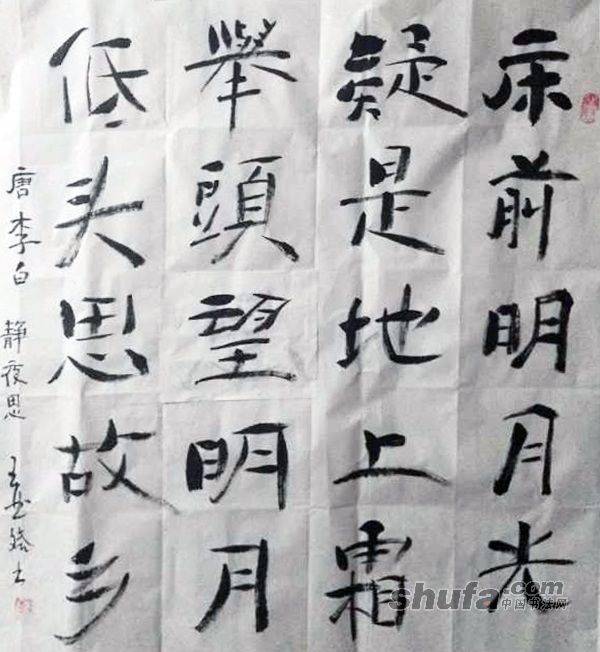 床前明月光
疑是地上霜
舉頭望明月
低头思故乡
唐李白 静夜思
shufa.com
中国书法网